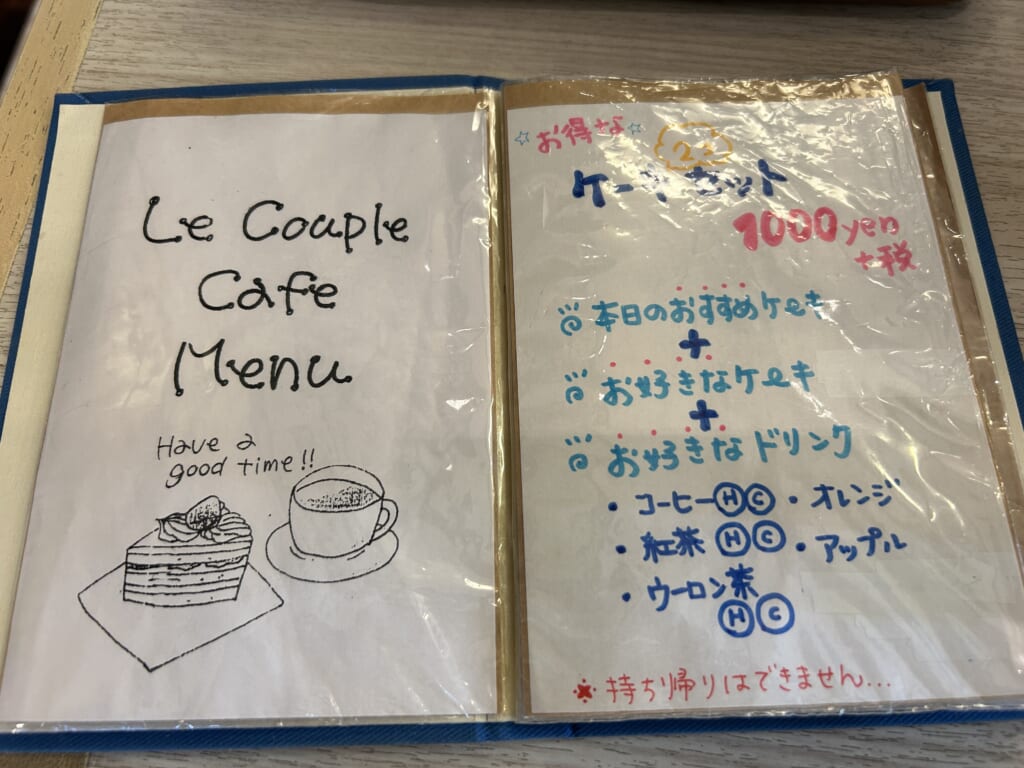 Le Couple
Cafe
Menu
Have a
good time!!
☆お得な☆
2コ
ケーキセット
1000yen
+税
本日のおすすめケーキ
+
お好きなケーキ
+
お好きなドリンク
・コーヒーⒽⒸ ・オレンジ
・紅茶ⒽⒸ ・アップル
・ウーロン茶
ⒽⒸ
※持ち帰りはできません...